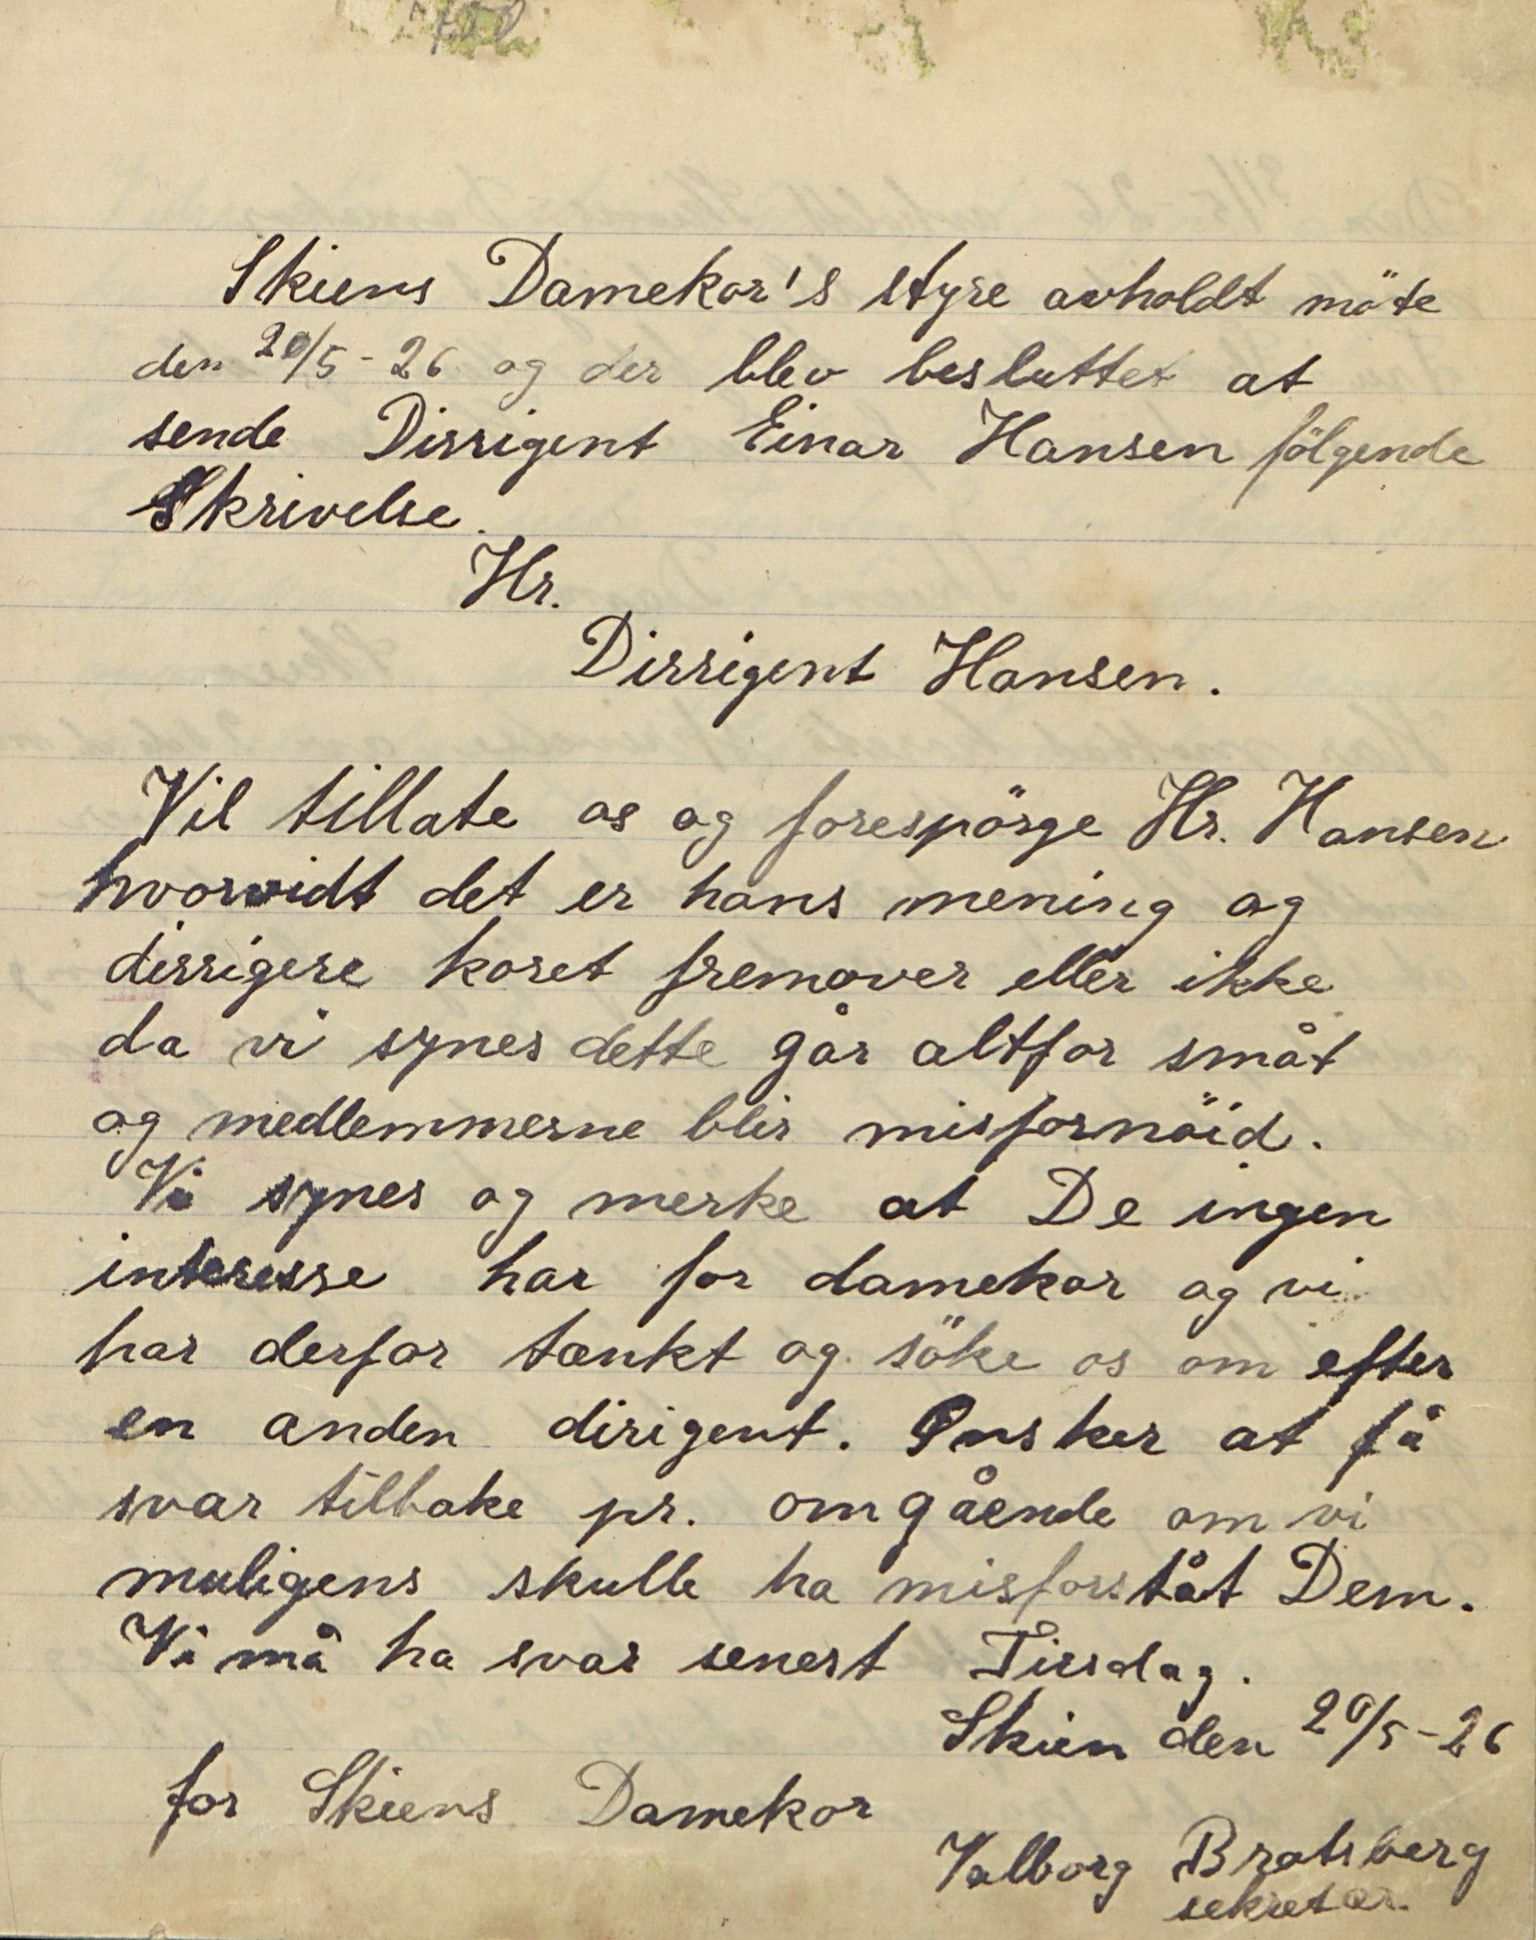 Skiens Damekor's styre avholdt möte
den 20/5-26 og der blev besluttet at
sende Dirrigent Einar Hansen fölgende
Skrivelse.
Hr.
Dirrigent Hansen.
Vil tillate os og forespörge Hr. Hansen
hvorvidt det er hans mening og
dirrigere koret fremover eller ikke
da vi synes dette går altfor småt
og medlemmerne blir misfornöid.
Vi synes og merke at De ingen
interesse har for damekor og vi
har derfor tænkt og söke os om efter
en anden dirigent. Ønsker at få
svar tilbake pr. omgående om vi
muligens skulle ha misforståt Dem.
Vi må ha svar senest Tirsdag.
Skien den 20/5-26
for Skiens Damekor
Valborg Bratsberg
sekretær.